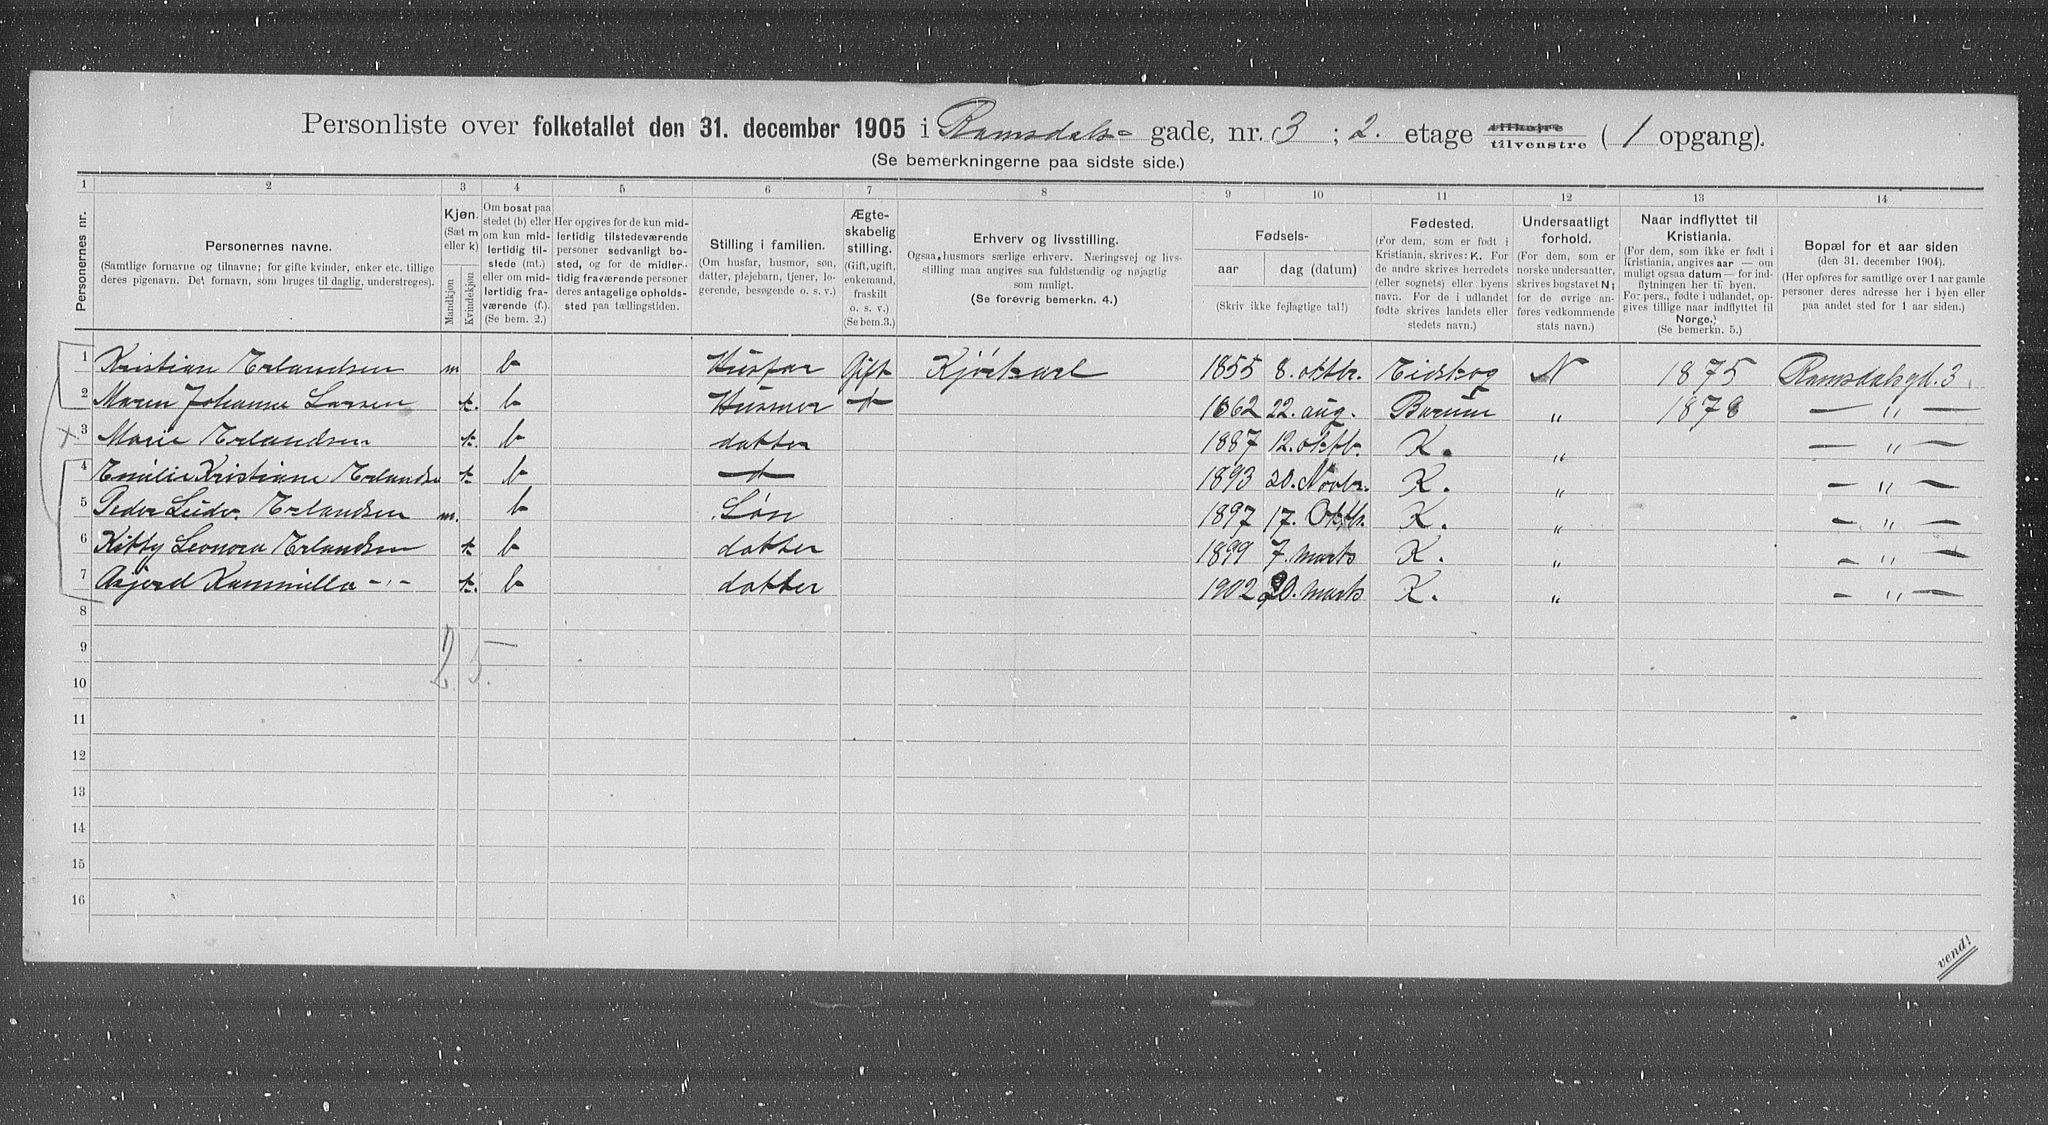 Personliste over folketallet den 31. december 1905 i Ramsdals- gade, nr. 3 ; 2. etage tilhøire tilvenstre ( 1 opgang).
(Se bemerkningerne paa sidste side.)
1 2 3 4 5 6 7 8 9 10 11 12 13 14
Personernes nr.
Personernes navne.
(Samtlige fornavne og tilnavne; for gifte kvinder, enker etc. tillige
deres pigenavn. Det fornavn, som bruges til daglig, understreges).
Kjøn.
(Sæt m
eller k)
Mandkjøn
Kvindekjøn
Om bosat paa
stedet (b) eller
om kun mid-
lertidig til-
stede (mt.)
eller om mid-
lertidig fra-
værende (f.).
(Se bem. 2.)
Her opgives for de kun mid-
lertidig tilstedeværende
personer sedvanligt bo-
sted, og for de midler-
tidig fraværende personer
deres antagelige opholds-
sted paa tællingstiden.
Stilling i familien.
(Om husfar, husmor, søn,
datter, plejebarn, tjener, lo-
gerende, besøgende o. s. v.)
Ægte-
skabelig
stilling.
(Gift, ugift,
enkemand,
fraskilt
o. s. v.)
(Se bem.3.)
Erhverv og livsstilling.
Ogsaa husmors særlige erhverv. Næringsvej og livs-
stilling maa angives saa fuldstændig og nøjagtig
som muligt.
(Se forøvrig bemerkn. 4.)
Fødsels-
aar
dag (datum)
(Skriv ikke fejlagtige tal!)
Fødested.
(For dem, som er født i
Kristiania, skrives: K. For
de andre skrives herredets
(eller sognets) eller byens
navn. For de i udlandet
fødte skrives landets eller
stedets navn.)
Undersaatligt
forhold.
(For dem, som er
norske undersaatter,
skrives bogstavet N;
for de øvrige an-
føres vedkommende
stats navn.)
Naar indflyttet til
Kristiania.
(For dem, som ikke er født i
Kristiania, angives aar — om
muligt ogsaa datum — for ind-
flytningen her til byen.
For pers., fødte i udlandet, op-
gives tillige naar indflyttet til
Norge.)
(Se bemerkn. 5.)
Bopæl for et aar siden
(den 31. december 1904).
(Her opføres for samtlige over 1 aar gamle
personer deres adresse her i byen eller
paa andet sted for 1 aar siden.)
1 Kristian Erlandsen m b Husfar Gift Kjørkarl 1855 8. oktbr. Eidskog N 1875 Ramsdalsgd. 3.
2 Maren Johanne Larsen k. b Husmor — d — 1862 22. aug. Bærum „ 1878 — „ —
3 Marie Erlandsen k. b datter 1887 12. oktb. K. „ — „ —
4 Emilie Kristiane Erlandse k b — d — 1893 20. Novbr. K. „ — „ —
5 Peder Ludv. Erlandsen m. b Søn 1897 17. Oktbr. K. „ — „ —
6 Kitty Leonora Erlandsen k b datter 1899 7. marts K. „ — „ —
7 Asjerd Kammilla — „ — k. b datter 1902 20. marts K. „ — „ —
8
9
2. 5.
10
11
12
13
14
15
16
vend!